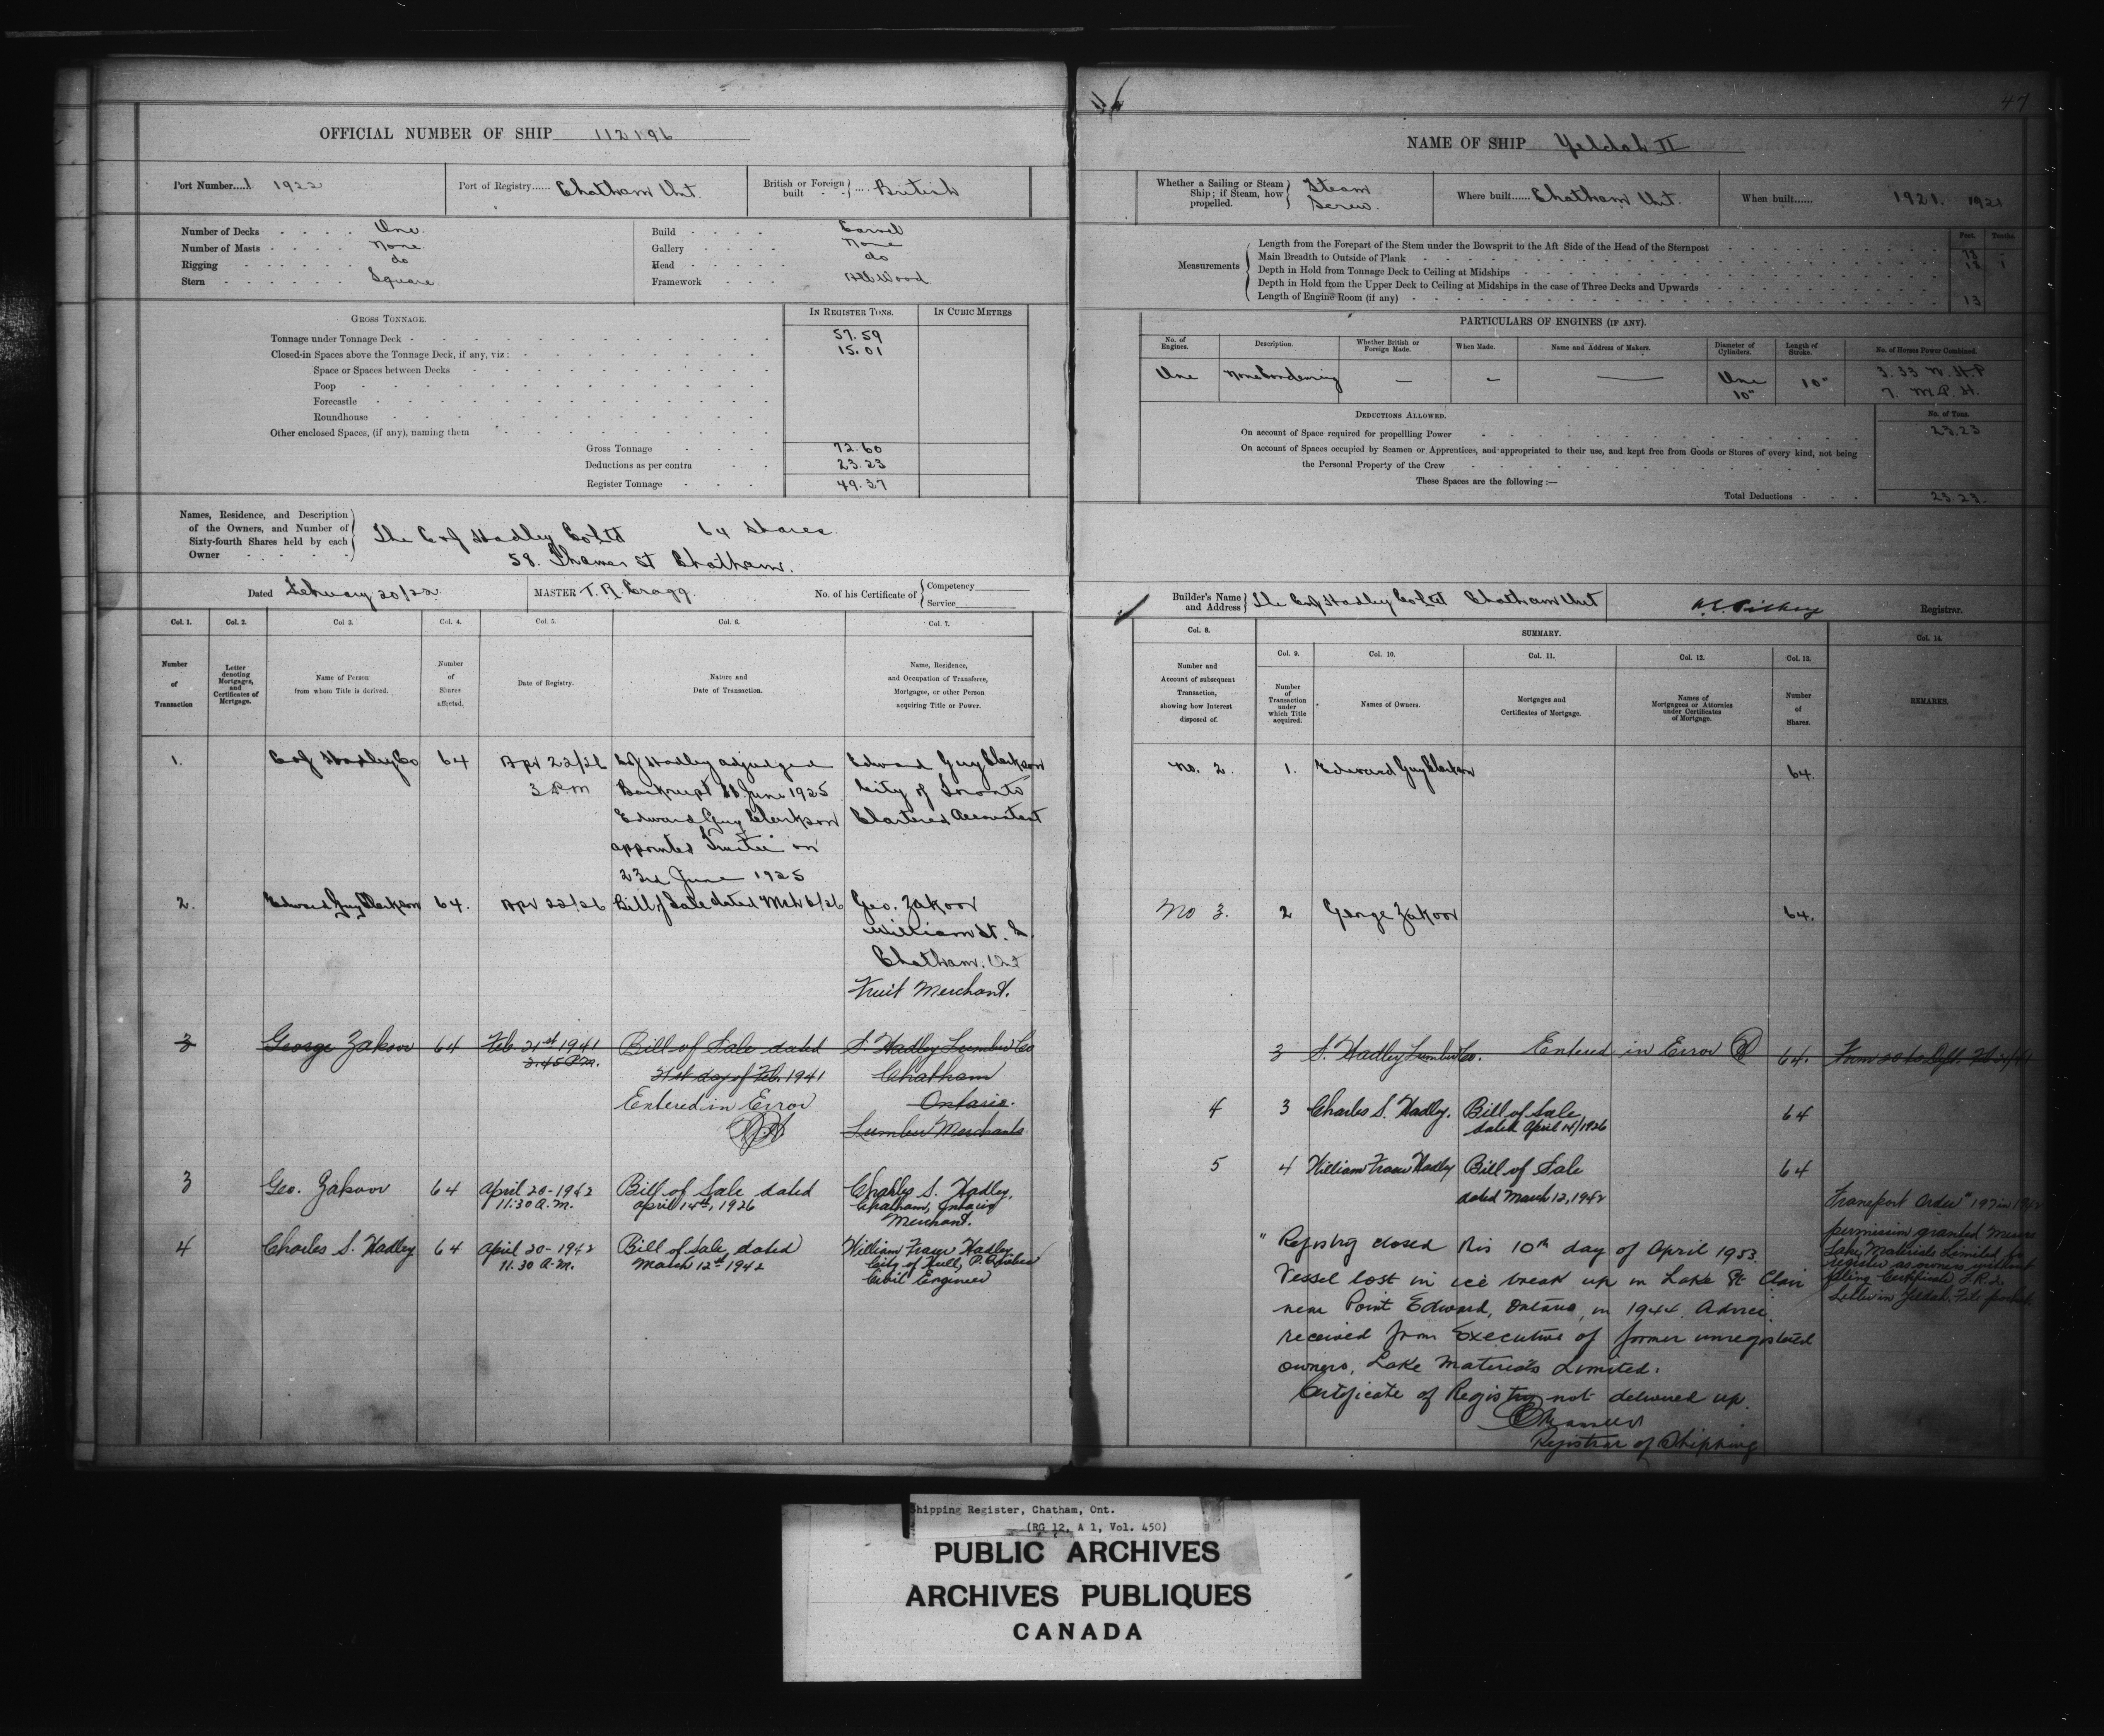 OFFICIAL NUMBER OF SHIP 112196
Port Number....1 1922
Port of Registry...... Chatham Ont.
British or Foreign built } .... British
Number of Decks One.
Number of Masts None.
Rigging do
Stern Square
Build Carvel
Gallery None
Head do
Framework All Wood
GROSS TONNAGE.
IN REGISTER TONS.
IN CUBIC METRES
Tonnage under Tonnage Deck 57.59
Closed-in Spaces above the Tonnage Deck, if any, viz: 15.01
Space or Spaces between Decks
Poop
Forecastle
Roundhouse
Other enclosed Spaces, (if any), naming them
Gross Tonnage 72.60
Deductions as per contra 23.23
Register Tonnage 49.37
Names, Residence, and Description of the Owners, and Number of Sixty-fourth Shares held by each Owner
The C & J Hadley Co Ltd 64 Shares.
58. Thames St Chatham.
Dated February 20/22
MASTER T. R. Cragg.
No. of his Certificate of { Competency
Service
Col. 1.
Col. 2.
Col 3.
Col. 4.
Col. 5.
Col. 6.
Col. 7.
Number of Transaction
Letter denoting Mortgages, and Certificates of Mortgage.
Name of Person from whom Title is derived.
Number of Shares affected.
Date of Registry.
Nature and Date of Transaction.
Name, Residence, and Occupation of Transferee, Mortgagee, or other Person acquiring Title or Power.
1. C & J Hadley Co 64 Apr 22/26 3 P.M
J Hadley adjudged
Bankrupt June 1925
Edward Guy Clarkson
appointed Trustee on
23rd June 1925
Edward Guy Clarkson
City of Toronto
Chartered Accountant
2. Edward Guy Clarkson 64. Apr 22/26 Bill of Sale dated Mch 6/26
Geo. Zakoor
William St. S.
Chatham. Ont
Fruit Merchant.
3 George Zakoor 64 Feb. 21st 1941
3.45 P.M.
Bill of Sale dated
21st day of Feb. 1941
Entered in Error
S. Hadley Lumber Co
Chatham
Ontario.
Lumber Merchants
3 Geo. Zakoor 64 April 20-1942
11:30 A.M.
Bill of Sale dated
April 14th, 1926
Charles S. Hadley,
Chatham, Ontario
Merchant.
4 Charles S. Hadley 64 April 20-1942
11.30 A.M.
Bill of Sale, dated
March 12th 1942
William Fraser Hadley
City of Hull, P. Quebec
Civil Engineer
46
47
NAME OF SHIP Yeldah II
Whether a Sailing or Steam Ship; if Steam, how propelled. } Steam
Screw.
Where built...... Chatham Ont.
When built...... 1921. 1921
Measurements
Feet. Tenths.
Length from the Forepart of the Stem under the Bowsprit to the Aft Side of the Head of the Sternpost
Main Breadth to Outside of Plank
Depth in Hold from Tonnage Deck to Ceiling at Midships
Depth in Hold from the Upper Deck to Ceiling at Midships in the case of Three Decks and Upwards
Length of Engine Room (if any) 13
PARTICULARS OF ENGINES (IF ANY).
No. of Engines.
Description.
Whether British or Foreign Made.
When Made.
Name and Address of Makers.
Diameter of Cylinders.
Length of Stroke.
No. of Horses Power Combined.
One None Condensing — — — One 10" 10" 3.33 N.H.P
7. M.P.H.
DEDUCTIONS ALLOWED.
No. of Tons.
On account of Space required for propelling Power 23.23
On account of Spaces occupied by Seamen or Apprentices, and appropriated to their use, and kept free from Goods or Stores of every kind, not being
the Personal Property of the Crew
These Spaces are the following :—
Total Deductions 23.23.
Builder's Name and Address } The C & J Hadley Co Ltd Chatham Ont
Registrar.
Col. 8.
SUMMARY.
Col. 14.
Col. 9.
Col. 10.
Col. 11.
Col. 12.
Col. 13.
Number and Account of subsequent Transaction, showing how Interest disposed of.
Number of Transaction under which Title acquired.
Names of Owners.
Mortgages and Certificates of Mortgage.
Names of Mortgagees or Attornies under Certificates of Mortgage.
Number of Shares.
REMARKS.
No. 2. 1. Edward Guy Clarkson 64.
No 3. 2 George Zakoor 64.
3 S. Hadley Lumber Co. Entered in Error 64.
4 3 Charles S. Hadley. Bill of Sale 64
dated April 14/1926
5 4 William Fraser Hadley Bill of Sale 64
dated March 12, 1942
Transport Order 197 in 194
permission granted
Lake Materials Limited to
register as owners without
filing Certificate,
Letter in Yeldah File
" Registry closed this 10th day of April 1953.
Vessel lost in ice break up in Lake St. Clair
near Point Edward, Ontario, in 1944. Advice
received from Executive of former unregistered
owners, Lake Materials Limited.
Certificate of Registry not delivered up.
Registrar of Shipping
Shipping Register, Chatham, Ont.
(RG 12, A 1, Vol. 450)
PUBLIC ARCHIVES
ARCHIVES PUBLIQUES
CANADA